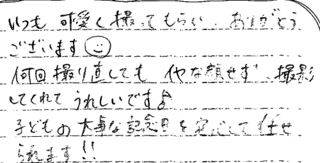 いつも 可愛く撮ってもらい、ありがとう
ございます☺
何回撮り直しても イヤな顔せず、撮影
してくれて うれしいです♪
子どもの 大事な記念日を安心して任せ
られます!!